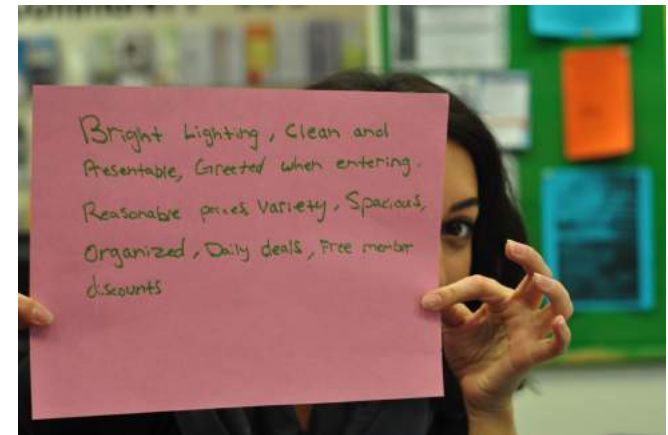 Bright Lighting, Clean and
Presentable, Greeted when entering.
Reasonable prices, Variety, Spacious,
Organized, Daily deals, Free member
discounts